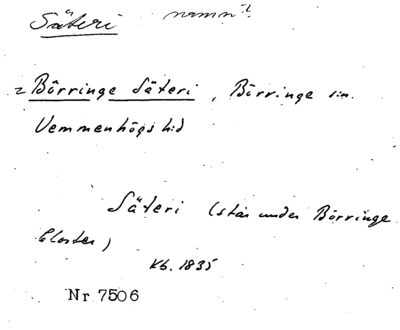 Säteri namn?
= Börringe Säteri, Börringe sn.
Vemmenhögs hd
Säteri (står under Börringe
Closter)
Kb. 1835
Nr 7506